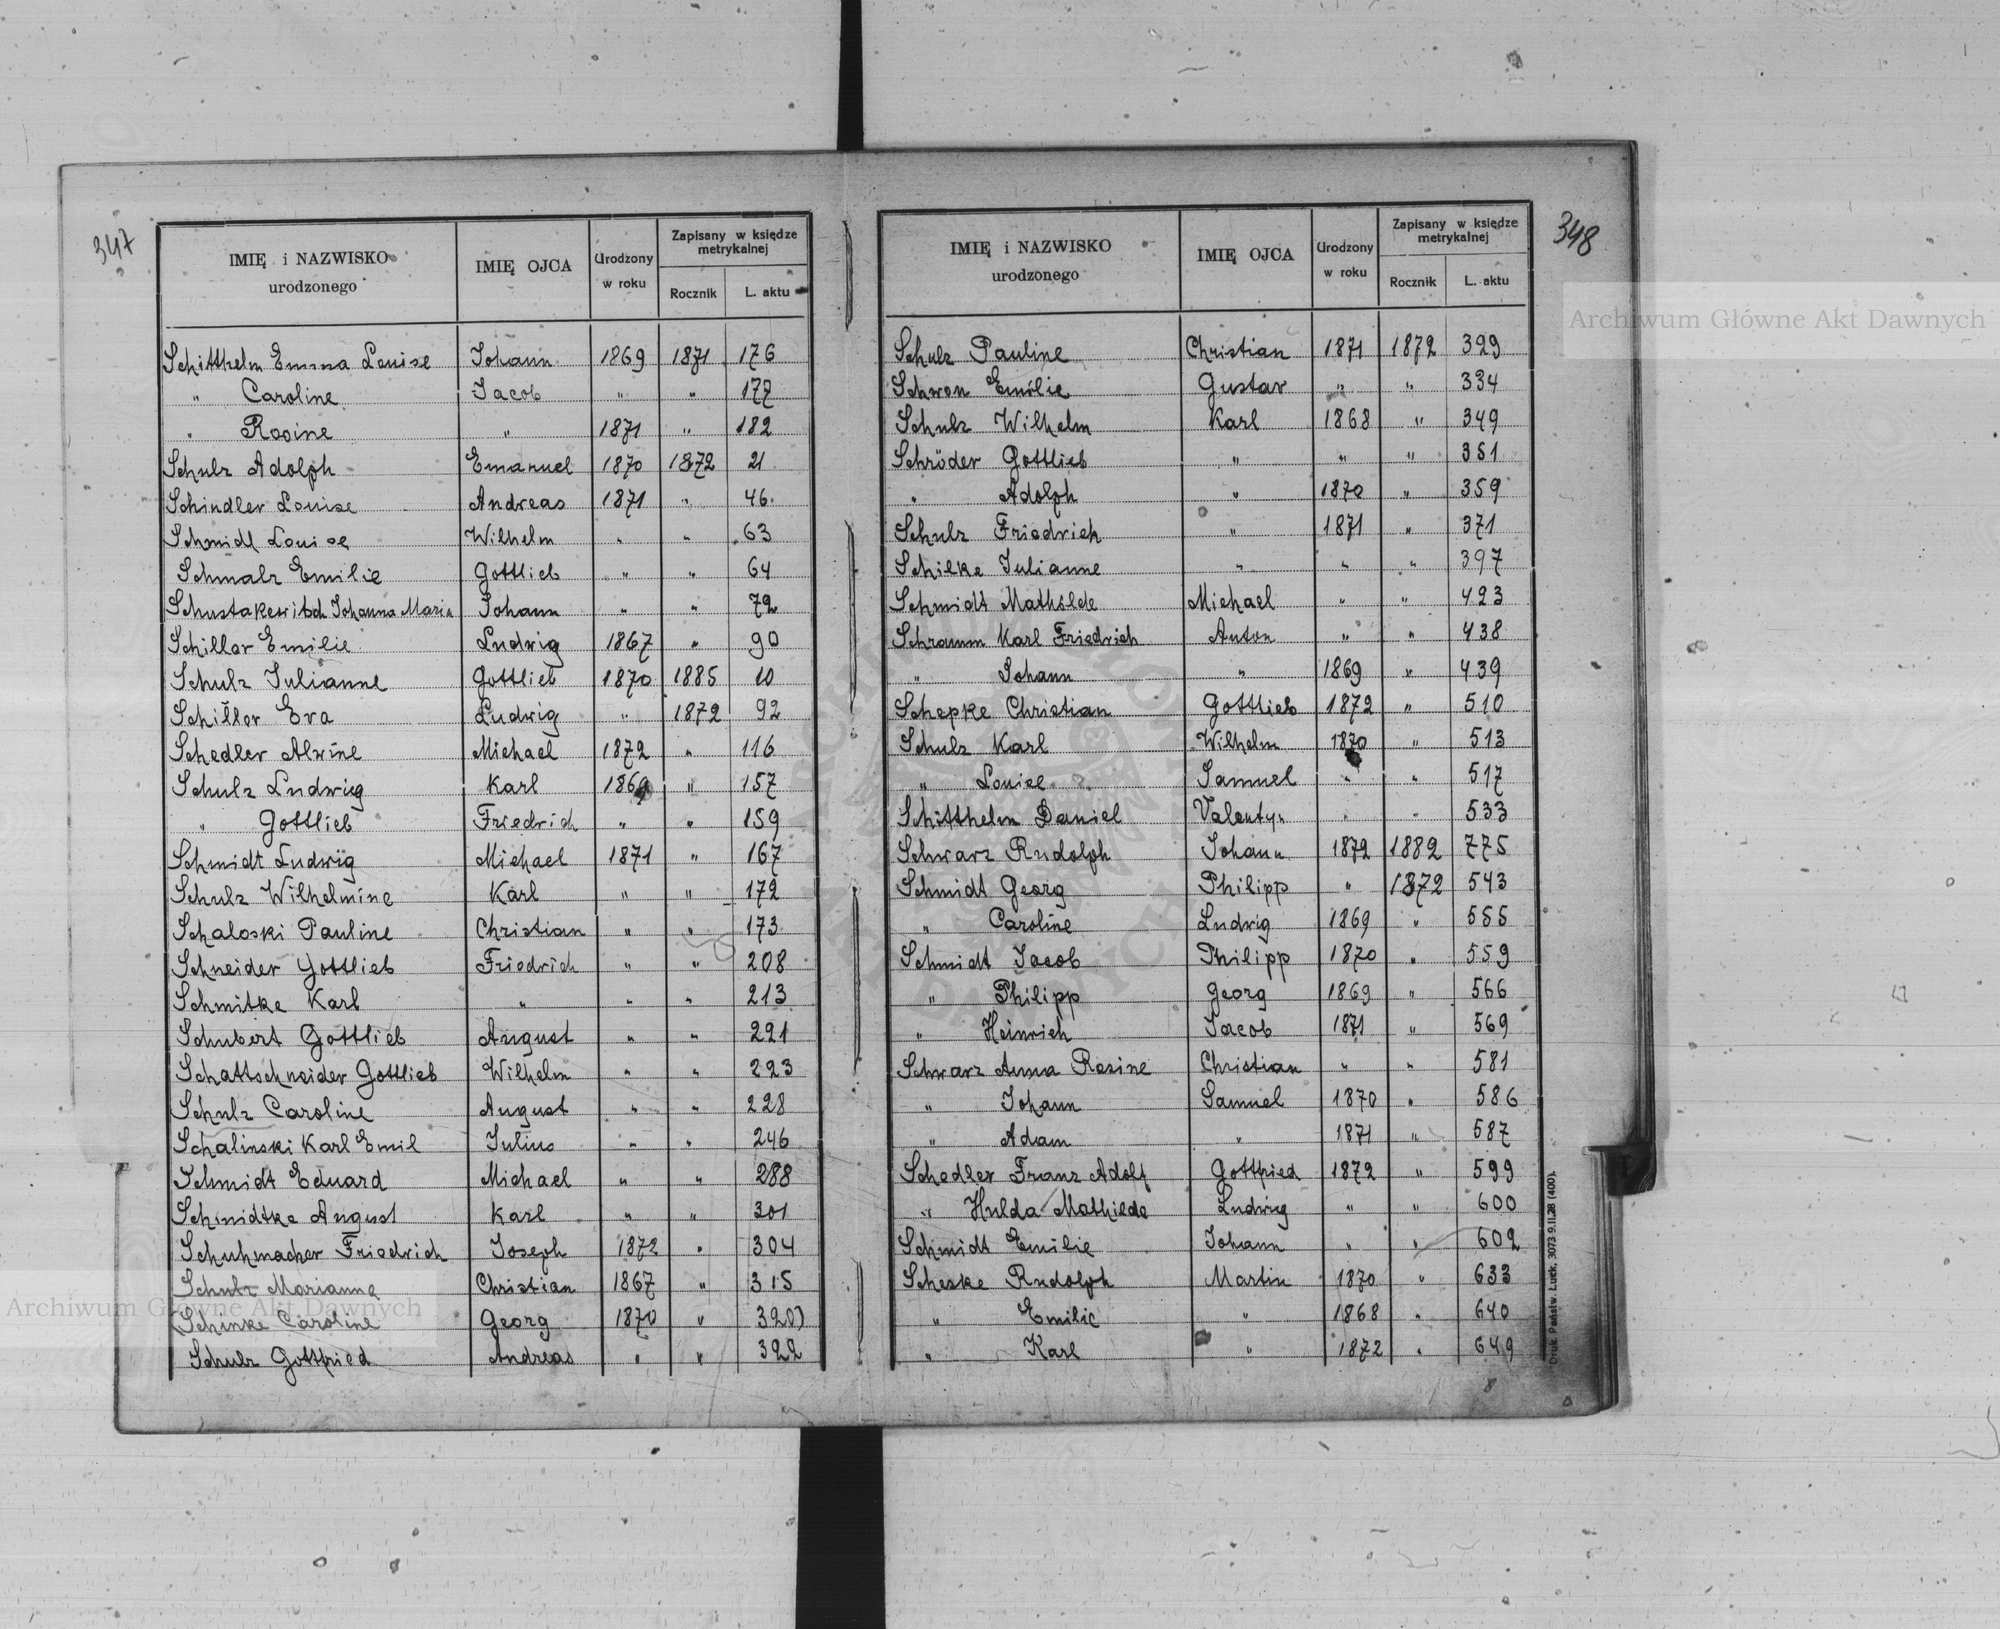 347
IMIĘ i NAZWISKO urodzonego IMIĘ OJCA Urodzony w roku Zapisany w księdze metrykalnej Rocznik L. aktu
Schitthelm Emma Louise Johann 1869 1871 176
" Caroline Jacob " " 177
" Rosine " 1871 " 182
Schulz Adolph Emanuel 1870 1872 21
Schindler Louise Andreas 1871 " 46
Schmidt Louise Wilhelm " " 63
Schmalz Emilie Gottlieb " " 64
Johanna Maria Johann " " 72
Schiller Emilie Ludwig 1867 " 90
Schulz Julianne Gottlieb 1870 1885 10
Schiller Eva Ludwig " 1872 92
Schedler Alwine Michael 1872 " 116
Schulz Ludwig Karl 1869 " 157
" Gottlieb Friedrich " " 159
Schmidt Ludwig Michael 1871 " 167
Schulz Wilhelmine Karl " " 172
Schaloski Pauline Christian " " 173
Schneider Gottlieb Friedrich " " 208
Schmitke Karl " " " 213
Schubert Gottlieb August " " 221
Schattschneider Gottlieb Wilhelm " " 223
Schulz Caroline August " " 228
Schalinski Karl Emil Julius " " 246
Schmidt Eduard Michael " " 288
Schmidtke August Karl " " 301
Schuhmacher Friedrich Joseph 1872 " 304
Schulz Marianne Christian 1867 " 315
(Schinke Caroline Georg 1870 " 320)
Schulz Gottfried Andreas " " 322
348
IMIĘ i NAZWISKO urodzonego IMIĘ OJCA Urodzony w roku Zapisany w księdze metrykalnej Rocznik L. aktu
Schulz Pauline Christian 1871 1872 329
Schwon Emilie Gustav " " 334
Schulz Wilhelm Karl 1868 " 349
Schröder Gottlieb " " " 351
" Adolph " 1870 " 359
Schulz Friedrich " 1871 " 371
Schilke Julianne " " " 397
Schmidt Mathilde Michael " " 423
Schramm Karl Friedrich Anton " " 438
" Johann " 1869 " 439
Schepke Christian Gottlieb 1872 " 510
Schulz Karl Wilhelm 1870 " 513
" Louise Samuel " " 517
Schitthelm Daniel Valentyn " " 533
Schwarz Rudolph Johann 1872 1882 775
Schmidt Georg Philipp " 1872 543
" Caroline Ludwig 1869 " 555
Schmidt Jacob Philipp 1870 " 559
" Philipp Georg 1869 " 566
" Heinrich Jacob 1871 " 569
Schwarz Anna Rosine Christian " " 581
" Johann Samuel 1870 " 586
" Adam " 1871 " 587
Schedler Franz Adolf Gottfried 1872 " 599
" Hulda Mathilde Ludwig " " 600
Schmidt Emilie Johann " " 602
Scheske Rudolph Martin 1870 " 633
" Emilie " 1868 " 640
" Karl " 1872 " 649
Druk. Państw. Łuck, 3073 9.II.28 (400).
Archiwum Główne Akt Dawnych
Archiwum Główne Akt Dawnych